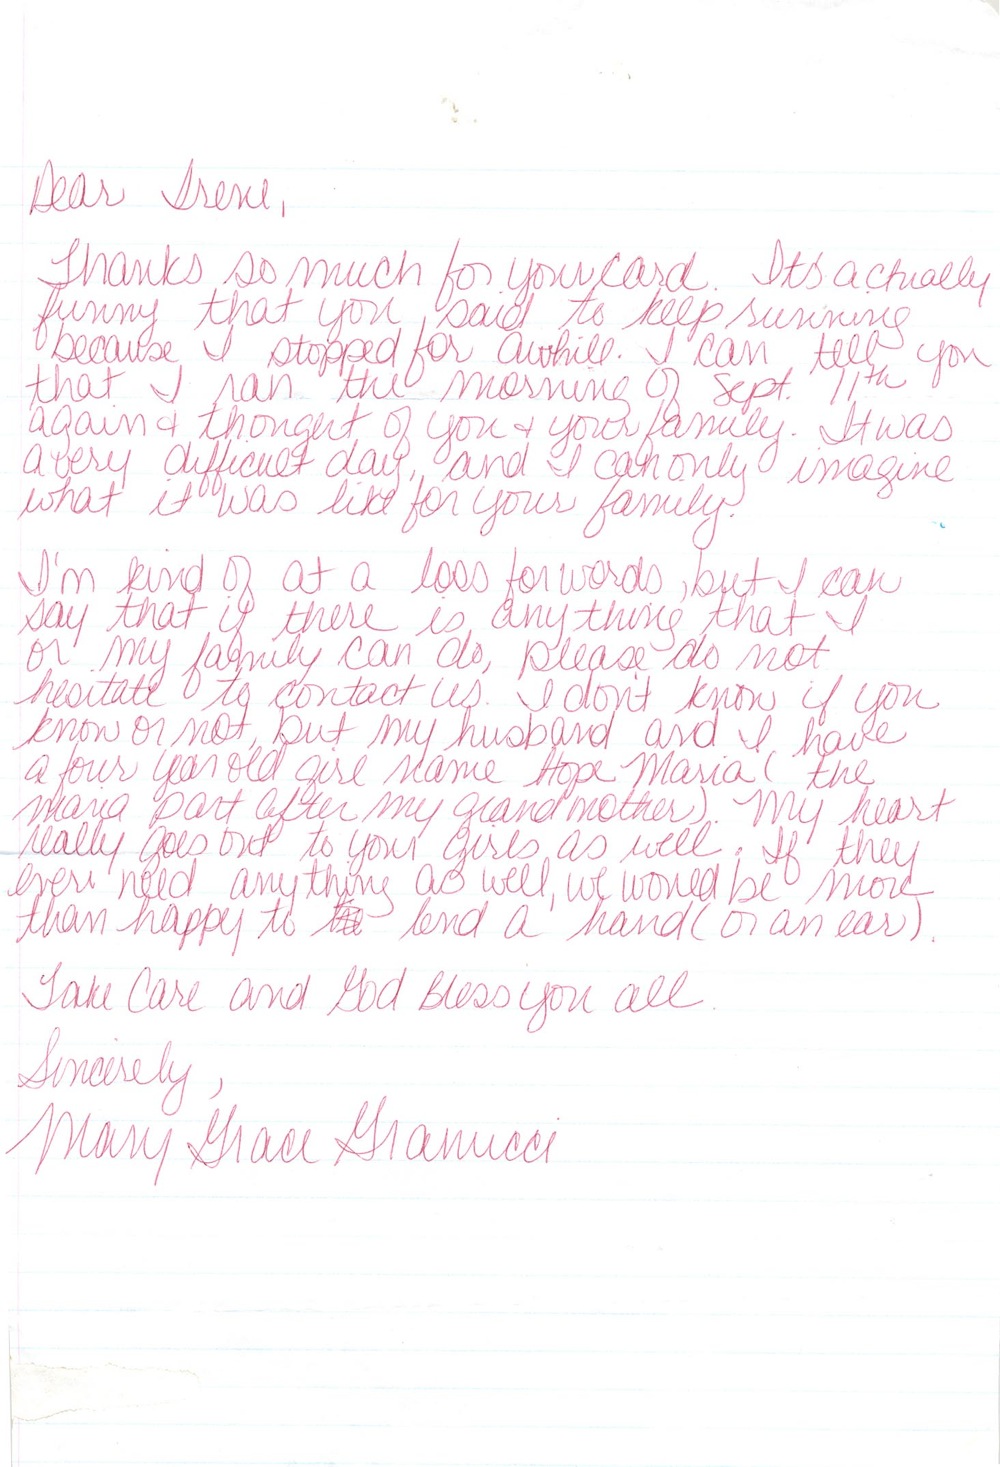 Dear Irene,
Thanks so much for your card. It's actually
funny that you said to keep running
because I stopped for awhile. I can tell you
that I ran the morning of Sept. 11th
again & thought of you & your family. It was
a very difficult day, and I can only imagine
what it was like for your family.
I'm kind of at a loss for words, but I can
say that if there is anything that I
or my family can do, please do not
hesitate to contact us. I don't know if you
know or not, but my husband and I have
a four year old girl name Hope Maria (the
maria part after my grandmother). My heart
really goes out to your girls as well. If they
ever need anything as well, we would be more
than happy to lend a hand (or an ear).
Take Care and God Bless you all.
Sincerely,
Mary Grace Granucci